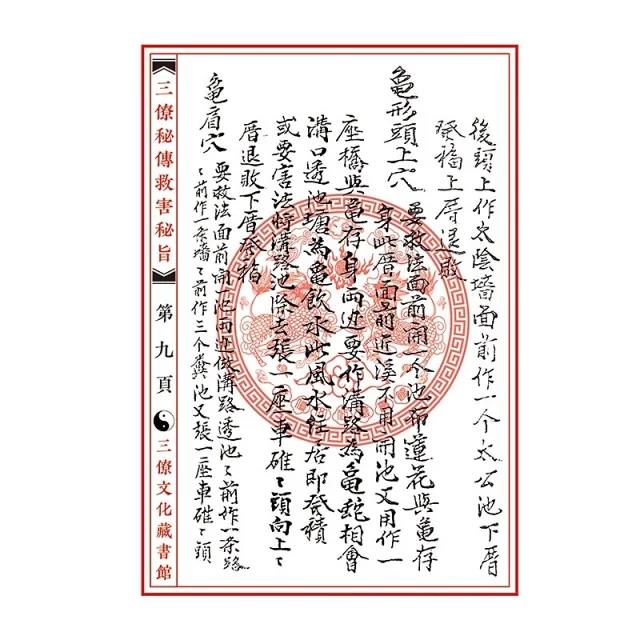 後頭上作太陰墻面前作一个太公池下厝
發福上厝退敗
龜形頭上穴
要救法面前開一个池布蓮花與龜存
身此厝面前近溪不用開池又用作一
座橋與龜存身兩边要作溝路為龜蛇相會
溝口透池塘為龜飲水此風水任居即發積
或要害法将溝路池除去張一座車碓〻頭向上〻
厝退敗下厝發福
龜肩穴
要救法面前開池两边做溝路透池〻前作一条路
〻前作一条墻〻前作三个糞池又張一座車碓〻頭
三僚秘傳救害秘旨
第九頁
三僚文化藏書館